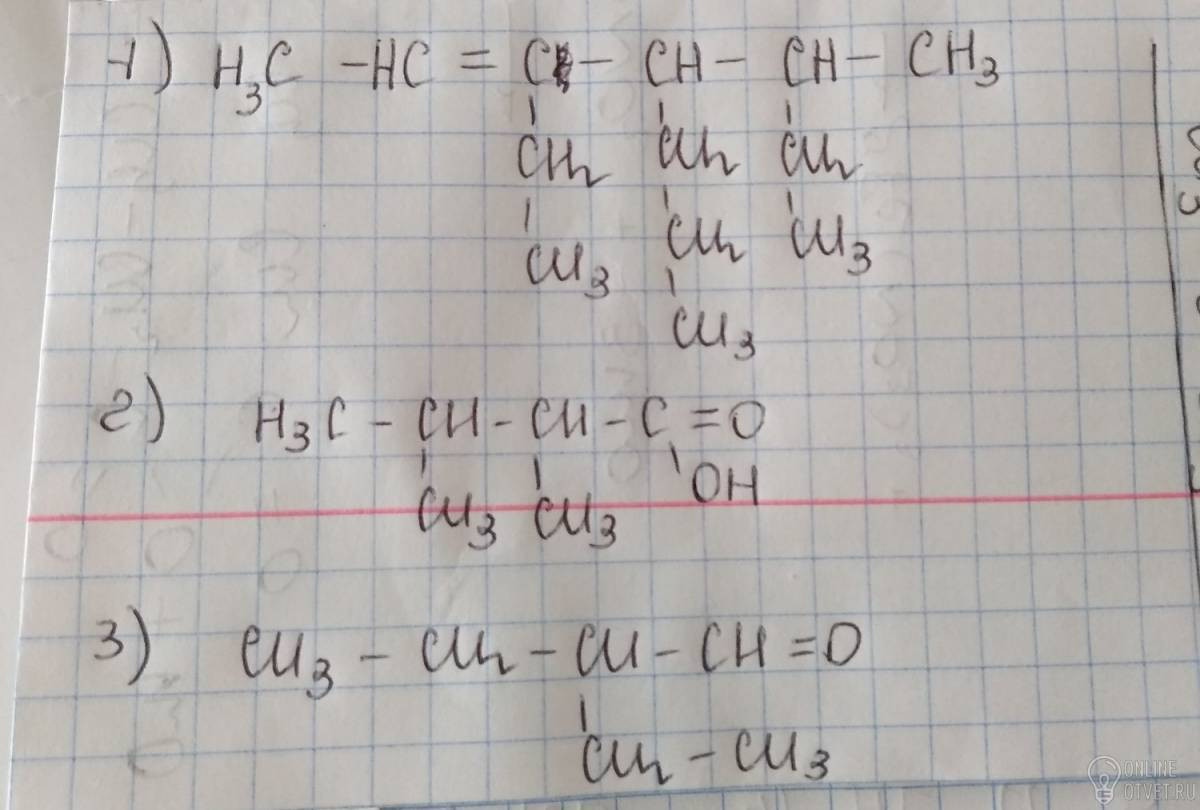 1) H3C - HC = C - CH - CH - CH3
CH2 CH2 CH2
CH3 CH2 CH3
CH3
2) H3C - CH - CH - C = O
CH3 CH3 OH
3) CH3 - CH2 - CH - CH = O
CH2 - CH3
ONLINE
OTVET.RU